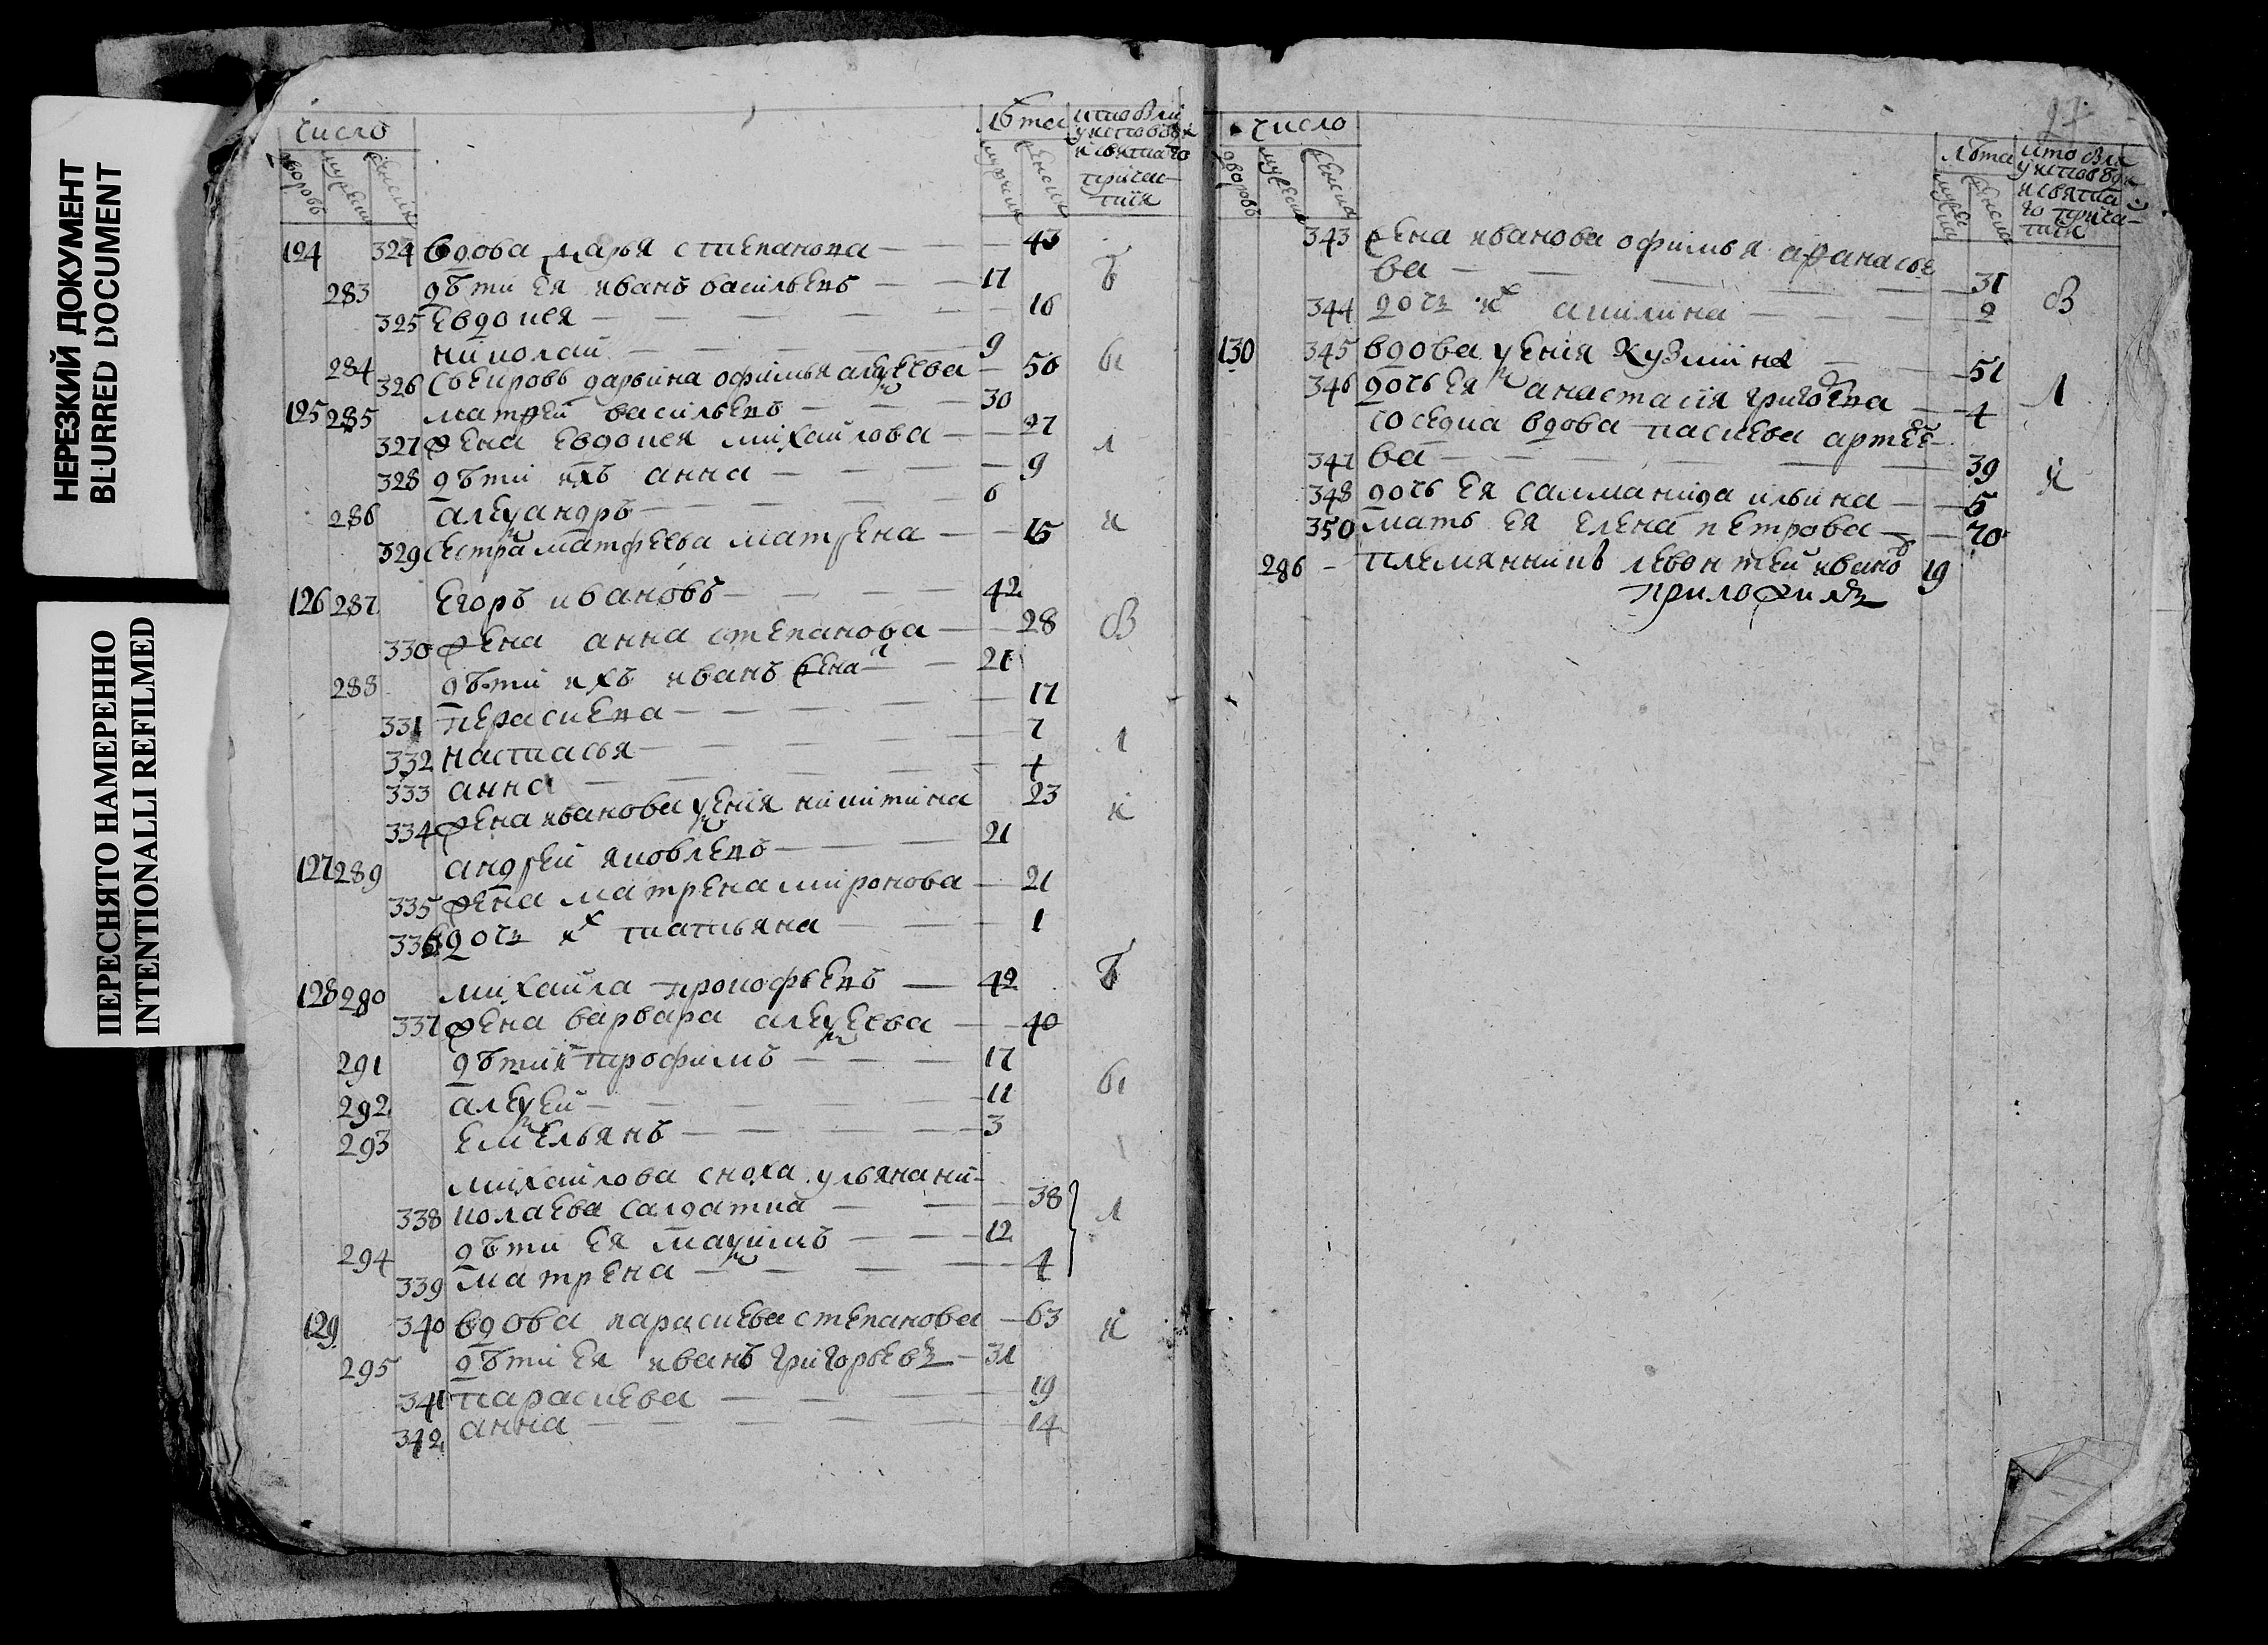 НЕРЕЗКИЙ ДОКУМЕНТ
BLURRED DOCUMENT
ПЕРЕСНЯТО НАМЕРЕННО
INTENTIONALLI REFILMED
число
дворовъ мужеска женска
лѣта
мужеска женска
кто были у исповѣди и святаго причастия
124 324 вдова дарья степанова 43
283 дѣти ея иванъ васильевъ 17
325 евдокея 16
284 николай 9
326 свекровь дарьина офимья алеѯеева 56
125 285 матфей васильевъ 30
327 жена евдокея михайлова 27
328 дѣти ихъ анна 9
286 алеѯандръ 6
329 сестра матфеева матрена 15
126 287 егоръ ивановъ 42
330 жена анна степанова 28
288 дѣти ихъ иванъ женатъ 21
331 парасиева 17
332 настасья 7
333 анна 4
334 жена иванова ѯения никитина 23
127 289 андрей яковлевъ 21
335 жена матрена миронова 21
336 дочь их татьяна 1
128 280 михайла прокофьевъ 42
337 жена варвара алеѯеева 40
291 дѣти их трофимъ 17
292 алеѯей 11
293 емельянъ 3
михайлова сноха ульяна ни-
338 колаева салдатка 38
294 дѣти ея маѯимъ 12
339 матрена 4
129 340 вдова парасиева степанова 63
295 дѣти ея иванъ григорьевъ 31
341 парасиева 19
342 анна 14
ѣ
ы
л
и
в
л
и
ѣ
ы
л
и
27
число
дворовъ мужеска женска
лѣта
мужеска женска
кто были у исповѣди и святаго причастия
343 жена иванова офимья афанасье
ва 31
344 дочь их акилина 2
130 345 вдова ѯения кузмина 51
346 дочь ея анастасия григорева 4
соседка вдова парасиева артее-
347 ва 39
348 дочь ея саламанида ильина 5
350 мать ея елена петрова 70
286 племянникъ левонтей ивановъ 19
приложилъ
в
л
и